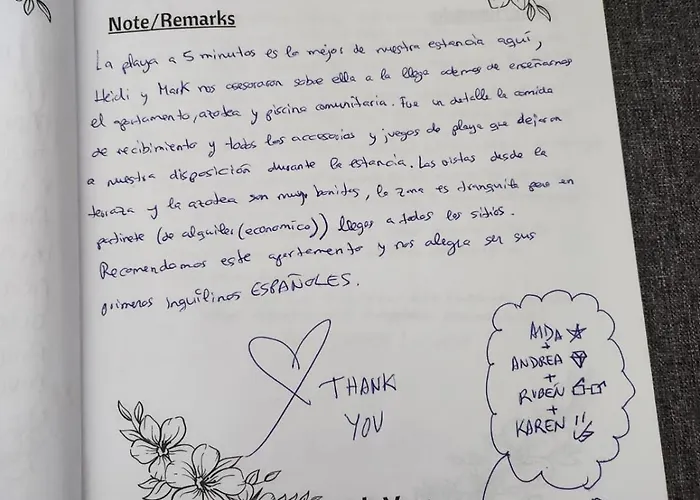 Note/Remarks
La playa a 5 minutos es lo mejor de nuestra estancia aquí,
Heidi y Mark nos asesoraron sobre ella a la llega ademas de enseñarnos
el apartamento, azotea y piscina comunitaria. Fue un detalle la comida
de recibimiento y todos los accesorios y juegos de playa que dejaron
a nuestra disposición durante la estancia. Las vistas desde la
terraza y la azotea son muy bonitas, la zona es tranquila pero en
patinete (de alquiler (económico)) llegas a todos los sitios.
Recomendamos este apartamento y nos alegra ser sus
primeros inquilinos ESPAÑOLES.
THANK
YOU
AIDA
+
ANDREA
+
RUBÉN
+
KAREN